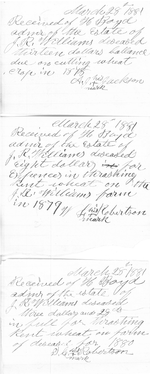 March 28th 1881
Received of W Boyd
admr of the Estate of
J. R. Williams deceased
thirteen dollars balance
due on cutting wheat
crop in 1878
his
Jackson
mark
March 28th 1881
Received of W Boyd
admr of the estate of
J. R. Williams deceased
eight dollars for
Expences in thrashing
Rent wheat on the
J. R. Williams farm
in 1879
his
Robertson
mark
March 28th 1881
Received of W Boyd
admr of the estate of
J. R. Williams deceased
three dollars
in full for thrashing
Rent wheat on farm
of deceased for 1880
his
Robertson
mark